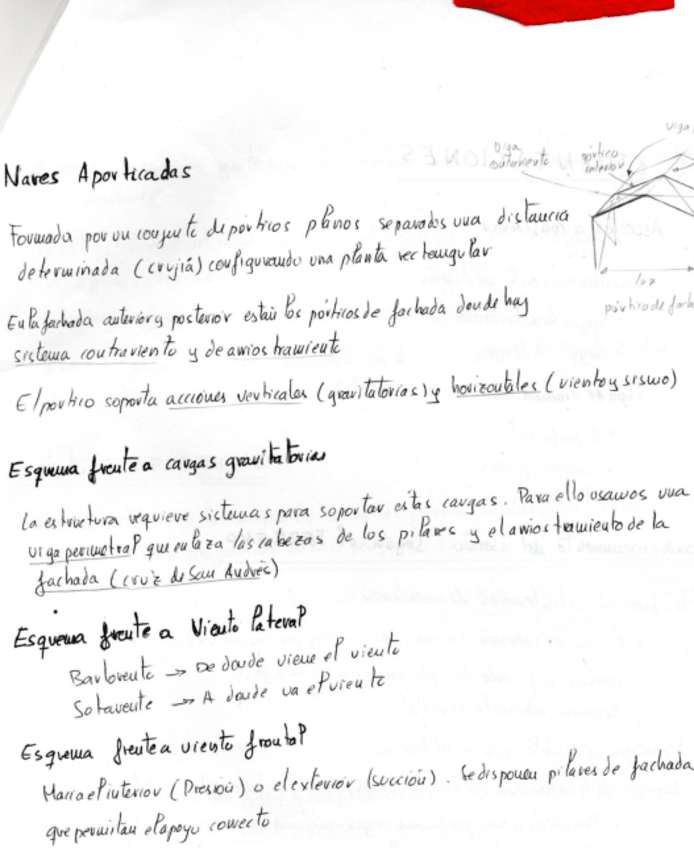 Viga
Viga
contraviento
pórtico
interior
Naves Aporticadas
luz
Formada por un conjunto de pórticos planos separados una distancia
determinada (crujía) configurando una planta rectangular
pórtico de fach
En la fachada anterior y posterior están los pórticos de fachada donde hay
sistema contraviento y de arriostramiento
El portico soporta acciones verticales (gravitatorias) y horizontales (viento y sismo)
Esquema frente a cargas gravitatorias
La estructura requiere sistemas para soportar estas cargas. Para ello usamos una
viga perimetral que enlaza las cabezas de los pilares y el arriostramiento de la
fachada (cruz de San Andrés)
Esquema frente a Viento lateral
Barlovento → De donde viene el viento
Sotavento → A donde va el viento
Esquema frente a viento frontal
Hacia el interior (Presión) o el exterior (succión). Se disponen pilares de fachada
que permitan el apoyo correcto